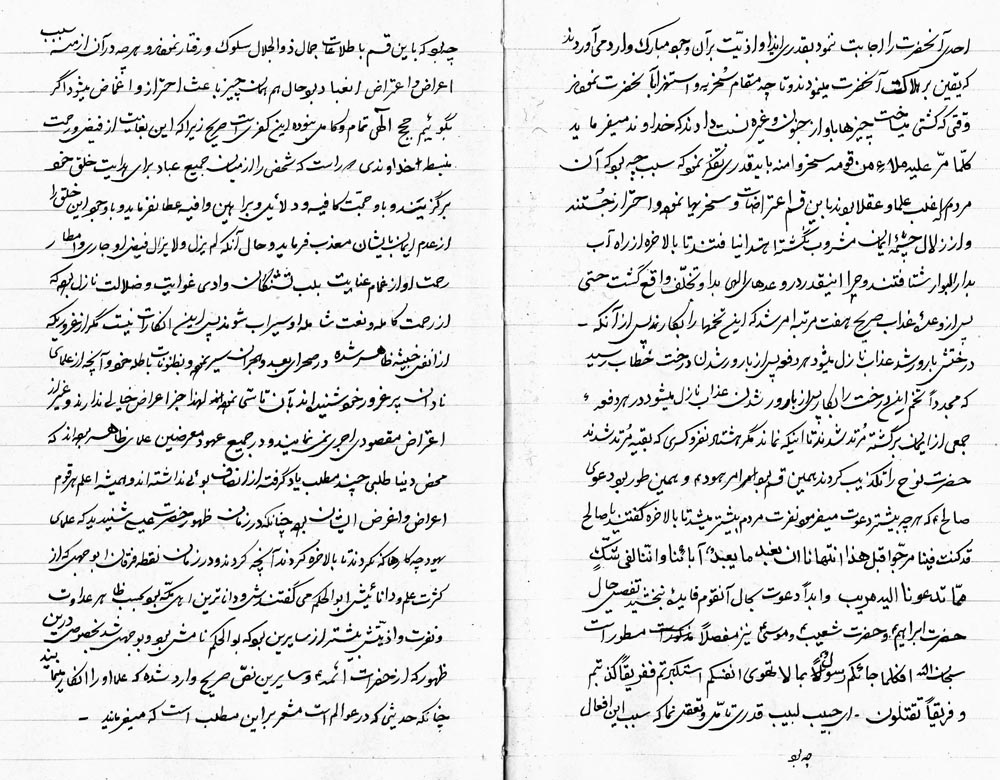 احدی آنحضرت را اجابت ننمود بقدری ایذا و اذیّت برآن وجود مبارک وارد می‌آوردند
که یقین بر هلاکت آنحضرت مینمودند و تا چه مقام سُخریه و استهزا بآنحضرت نمودند
وقتی که کشتی میساخت چیزها باو از جنون و غیره نسبت دادند که خداوند میفرماید
کلّما مرّ علیه ملاء من قومه سخروا منه باید قدری تفکّر نمود که سبب چه بود که آن
مردم که اغلب علما و عقلا بودند باین قسم اعتراضات و سخریها نمود و احتراز جُستند
و از زلال چشمهٔ ایمان مشروب نگشته اهتدا نیافتند تا بالاخره از راه آب
بدار البوار شتافتند و چرا اینقدر در وعدهای الهی بدا و تخلّف واقع گشت حتّی
پس از وعدهٔ عذاب صریح هفت مرتبه امر شد که این تخمها را بکارند پس از آنکه ـ
درختش بارور شد عذاب نازل میشود هر دفعه پس از بارور شدن درخت خطاب رسید
که مجدداً تخم این درخت را بکار پس از بارور شدن عذاب نازل میشود در هر دفعه
جمعی از ایمان برگشته مُرتد شدند تا اینکه نماند مگر هشتاد نفر و کسری که بقیه مُرتد شدند
حضرت نوح را تکذیب کردند بهمین قسم بود امر هود و بهمین طور بود دعوی
صالح که هر چه بیشتر دعوت میفرمود نفرت مردم بیشتر میشد تا بالاخره گفتند یا صالح
قد کنت فینا مرجّوا قبل هذا اتنهانا ان نعبد ما یعبد آبائنا و اننا لفی شکّ
ممّا تدعونا الیه مریب و ابداً دعوت بحال آنقوم فایده نبخشید تفصیل حال
حضرت ابراهیم و حضرت شعیب و موسی نیز مفصلاً مذکور است مسطور است
سبحان الله افکلما جائکم رسولٌ بما لا تهوی انفسکم استکبرتم ففریقاً کذبتم
و فریقاً تقتلون ـ ای حبیب لبیب قدری تامّل و تعقل نما که سبب این افعال
چه بود
چه بود که باین قسم با طلاعات جمال ذو الجلال سلوک و رفتار نمودند و هرچه در آن ازمنه سبب
اعراض و اعتراض العباد بود حال هم همان چیز باعث احتراز و اغماض میشود اگر
بگوئیم حجج الهی تمام و کامل نبوده این کفری است صریح زیرا که این بغایت از فیض و رحمت
منبسطه خداوندی دور است که شخصی را از میان جمیع عباد برای هدایت خلق خود
برگزیند و باو حجت کافیه و دلائل و براهین وافیه عطا نفرماید و با وجود این خلق را
از عدم ایمان بایشان معذب فرماید و حال آنکه لم یزل و لا یزال فیض او جاری و امطار
رحمت او از غمام عنایت بلب تشنگان وادی غوایت و ضلالت نازل بوده که
از رحمت کامله و نعمت شامله او سیراب شوند پس این انکارات نیست مگر از غروریکه
از انفس خبیثه ظاهر شده در صحرای بعد و هجران سیر نموده بظنونات باطله خود و آنچه از علمای
نادان پر غرور خود شنیده‌اند بآن تاسّی نموده‌اند لهذا جز اعراض خیالی ندارند و غیر از
اعتراض مقصودی اجری نمی‌نمایند و در جمیع عهود معرضین علمای ظاهر بوده‌اند که
محض دنیا طلبی چند مطلب یاد گرفته از انصاف بوئی نداشته‌اند و همیشه اعلم هر قوم
اعراض و اغرض ایشان بود چنانکه در زمان ظهور حضرت عیسی شنیدید که علمای
یهود چه کارها که نکردند تا بالاخره کردند آنچه کردند و در زمان نقطه فرقان ابوجهل که از
کثرت علم و دانائیش ابوالحکم می‌گفتند و داناترین اهل مکّه بود بحسب ظاهر عداوت
و نفرت و اذیتش بیشتر از سایرین بود که بوالحکم نامش بود و بوجهل شد بخصوص در این
ظهور که از حضرات ائمه و سایرین نصّ صریح وارد شده که علما او را انکار مینمایند
چنانکه حدیثی که در عوالم است مشعر بر این مطلب است که میفرماید ـ